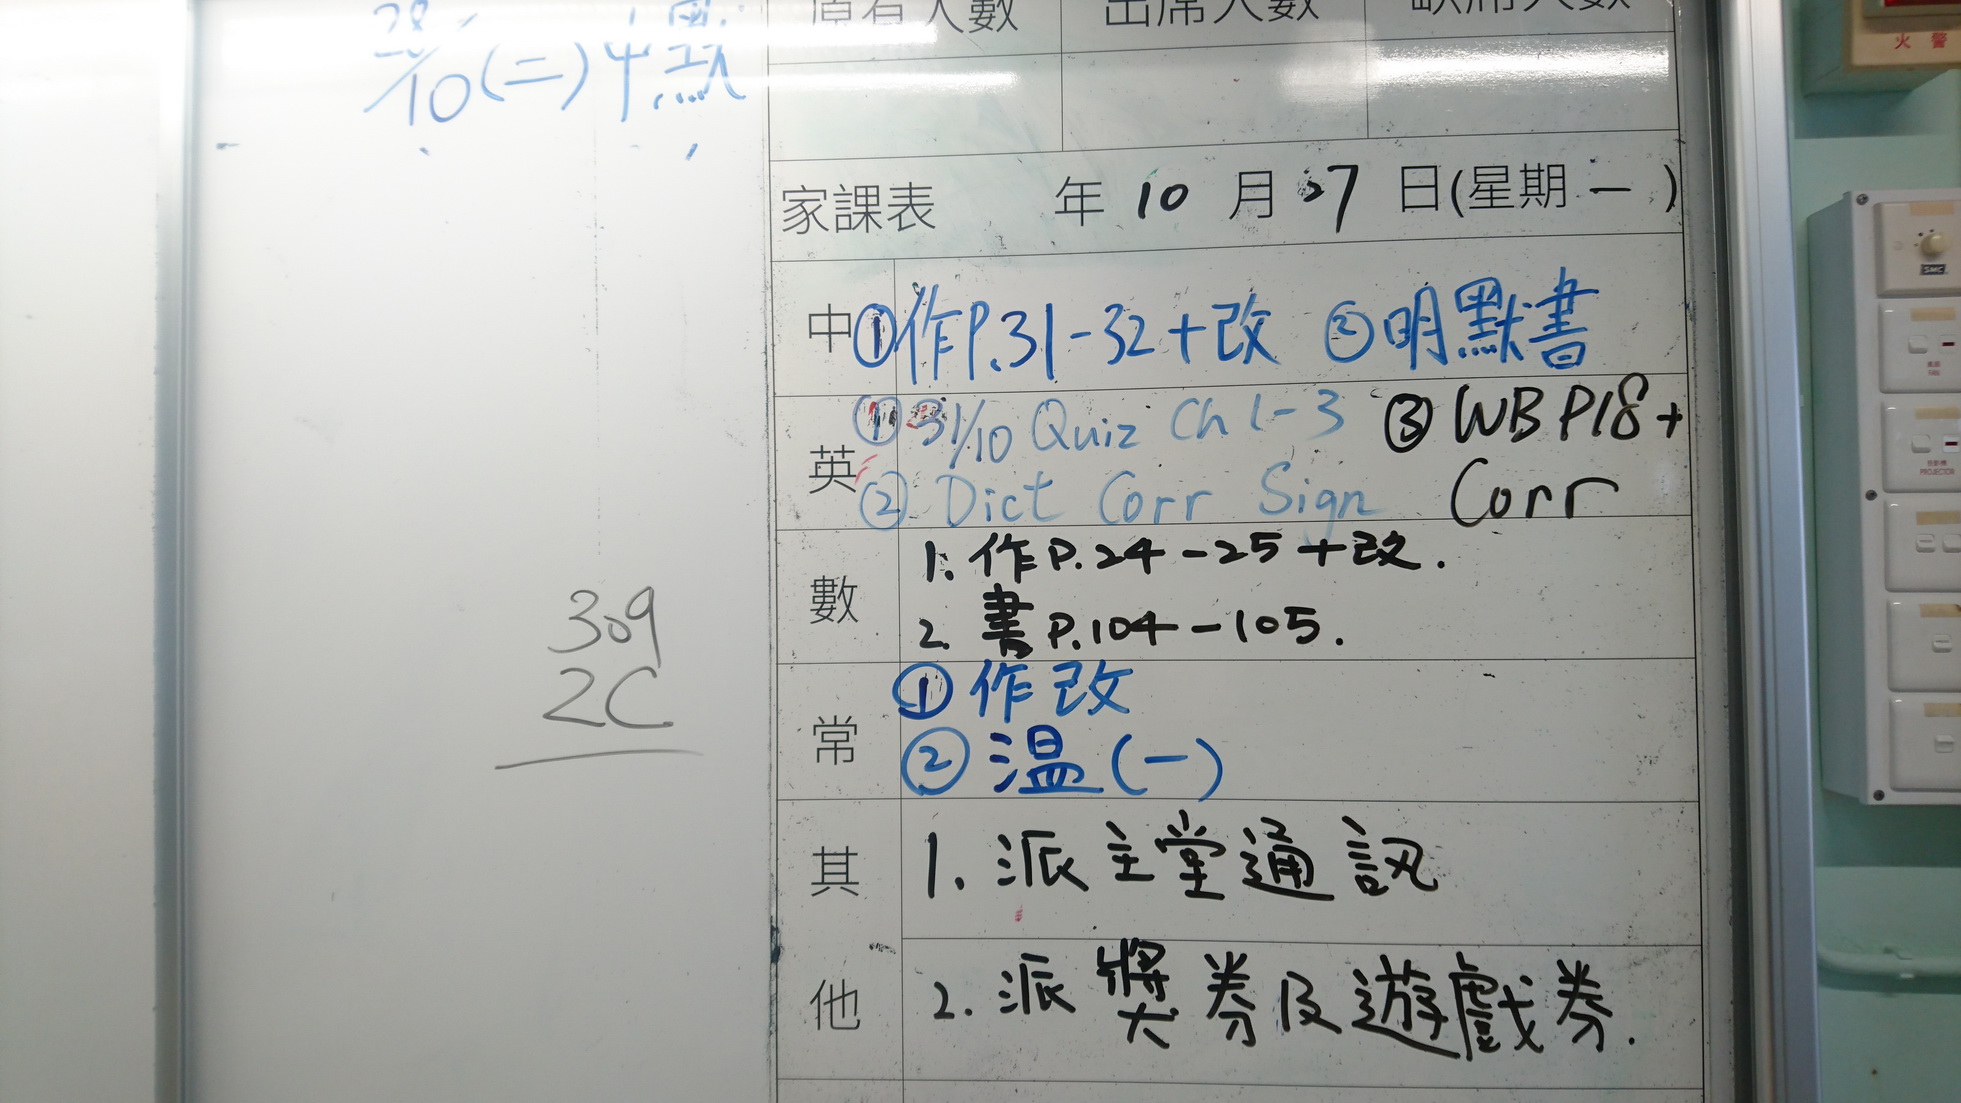 28/10(二)中默
原有人數 出席人數 缺席人數
家課表 年 10 月 27 日(星期 一 )
中 ①作P.31-32+改 ②明默書
英 ① 31/10 Quiz Ch 1-3 ③ WB P18+
② Dict Corr Sign Corr
數 1. 作P.24-25+改.
2. 書P.104-105.
常 ①作改
② 溫(一)
其他 1. 派主堂通訊
2. 派獎券及遊戲券.
309
2C
火警
SMC
PROJECTOR